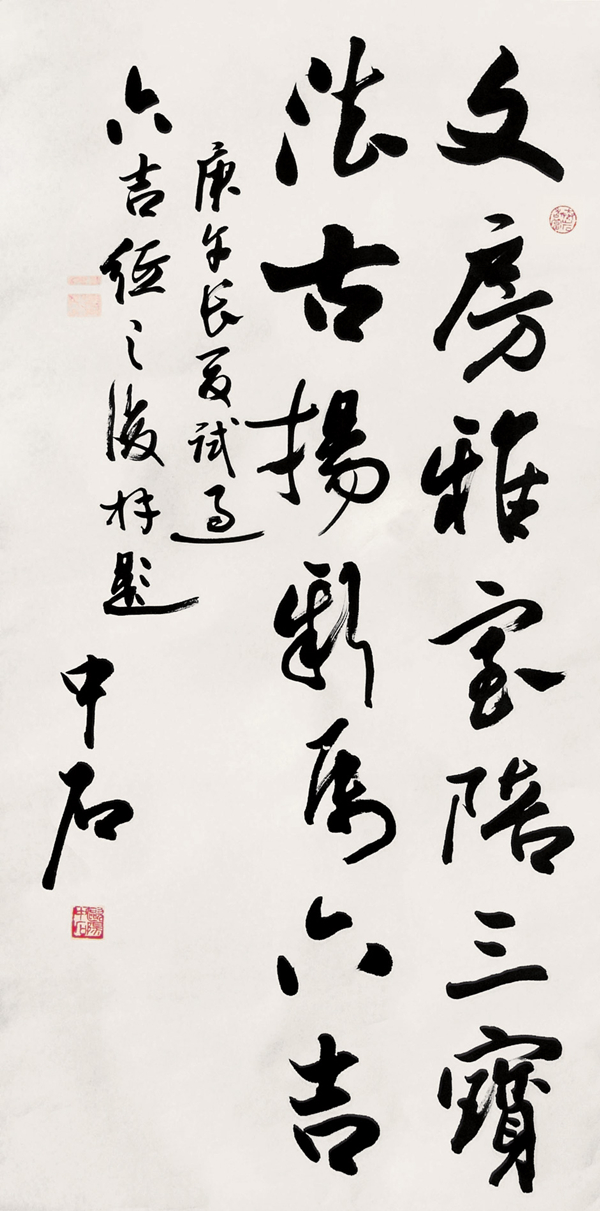 文房雅室陪三寶
法古揚新属六吉
庚午长夏試過
六吉紙之後題
中石